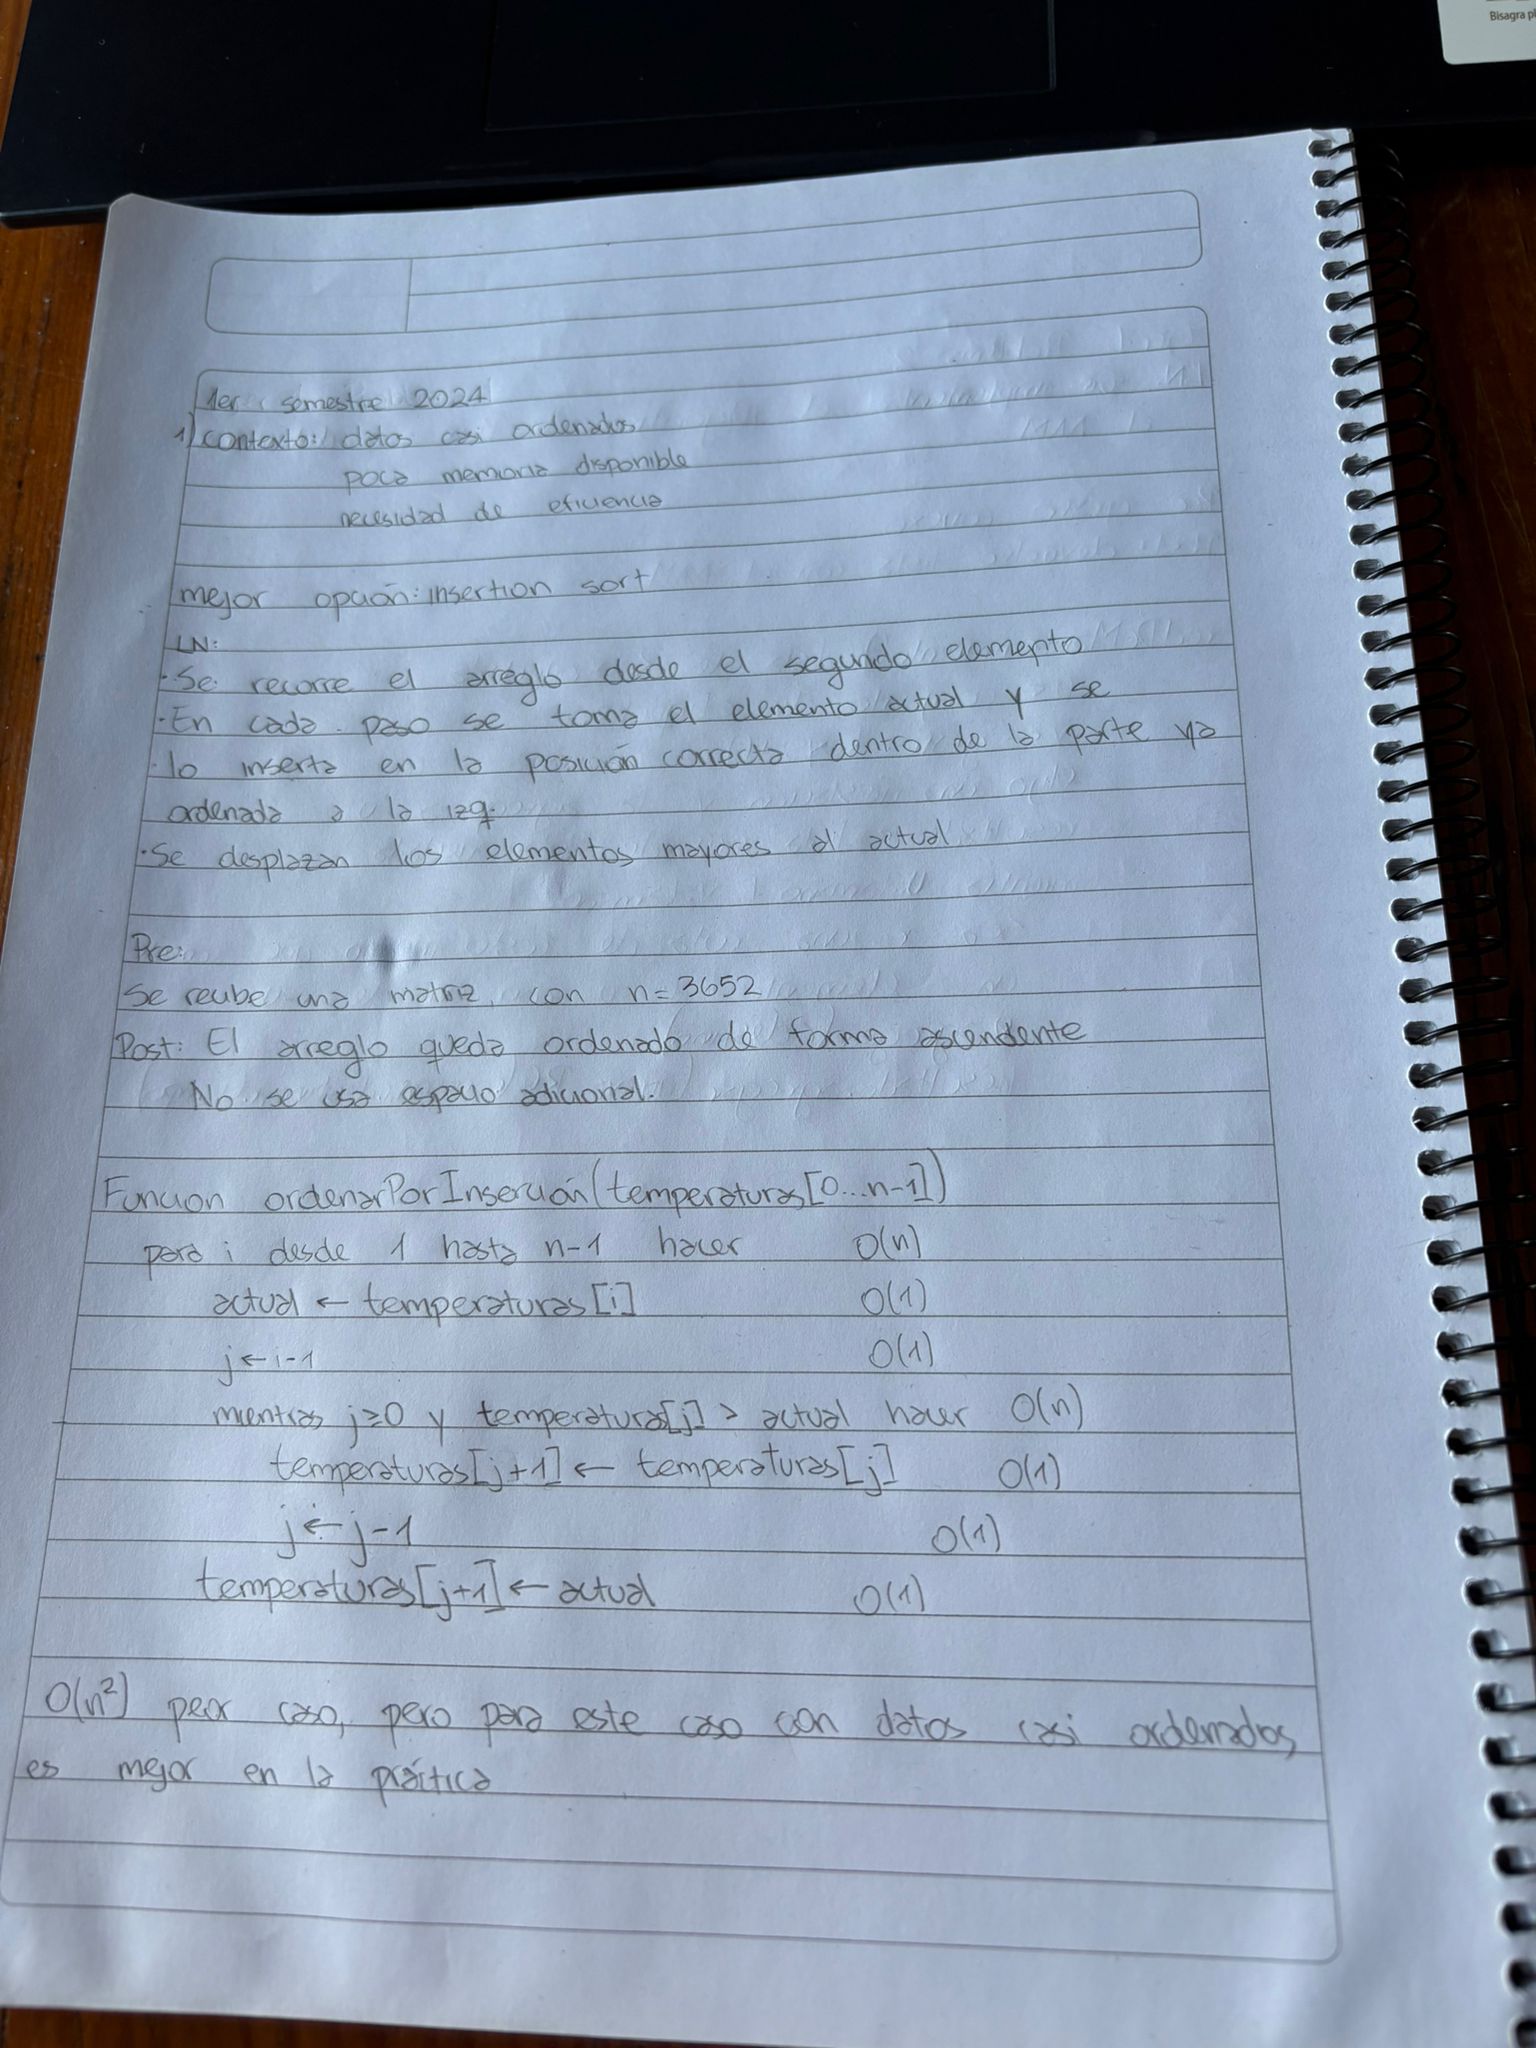 Bisagra pl
1er semestre 2024
1) contexto: datos casi ordenados
poca memoria disponible
necesidad de eficiencia
mejor opción: insertion sort
LN:
·Se recorre el arreglo desde el segundo elemento
·En cada paso se toma el elemento actual y se
·lo inserta en la posición correcta dentro de la parte ya
ordenada a la izq.
·Se desplazan los elementos mayores al actual
Pre:
Se recibe una matriz, con n=3652
Post: El arreglo queda ordenado de forma ascendente
No se usa espacio adicional.
Funcion ordenarPorInserción(temperaturas[0...n-1])
para i desde 1 hasta n-1 hacer O(n)
actual ← temperaturas[i] O(1)
j←i-1 O(1)
mientras j≥0 y temperaturas[j] > actual hacer O(n)
temperaturas[j+1] ← temperaturas[j] O(1)
j←j-1 O(1)
temperaturas[j+1] ← actual O(1)
O(n²) peor caso, pero para este caso con datos casi ordenados,
es mejor en la práctica